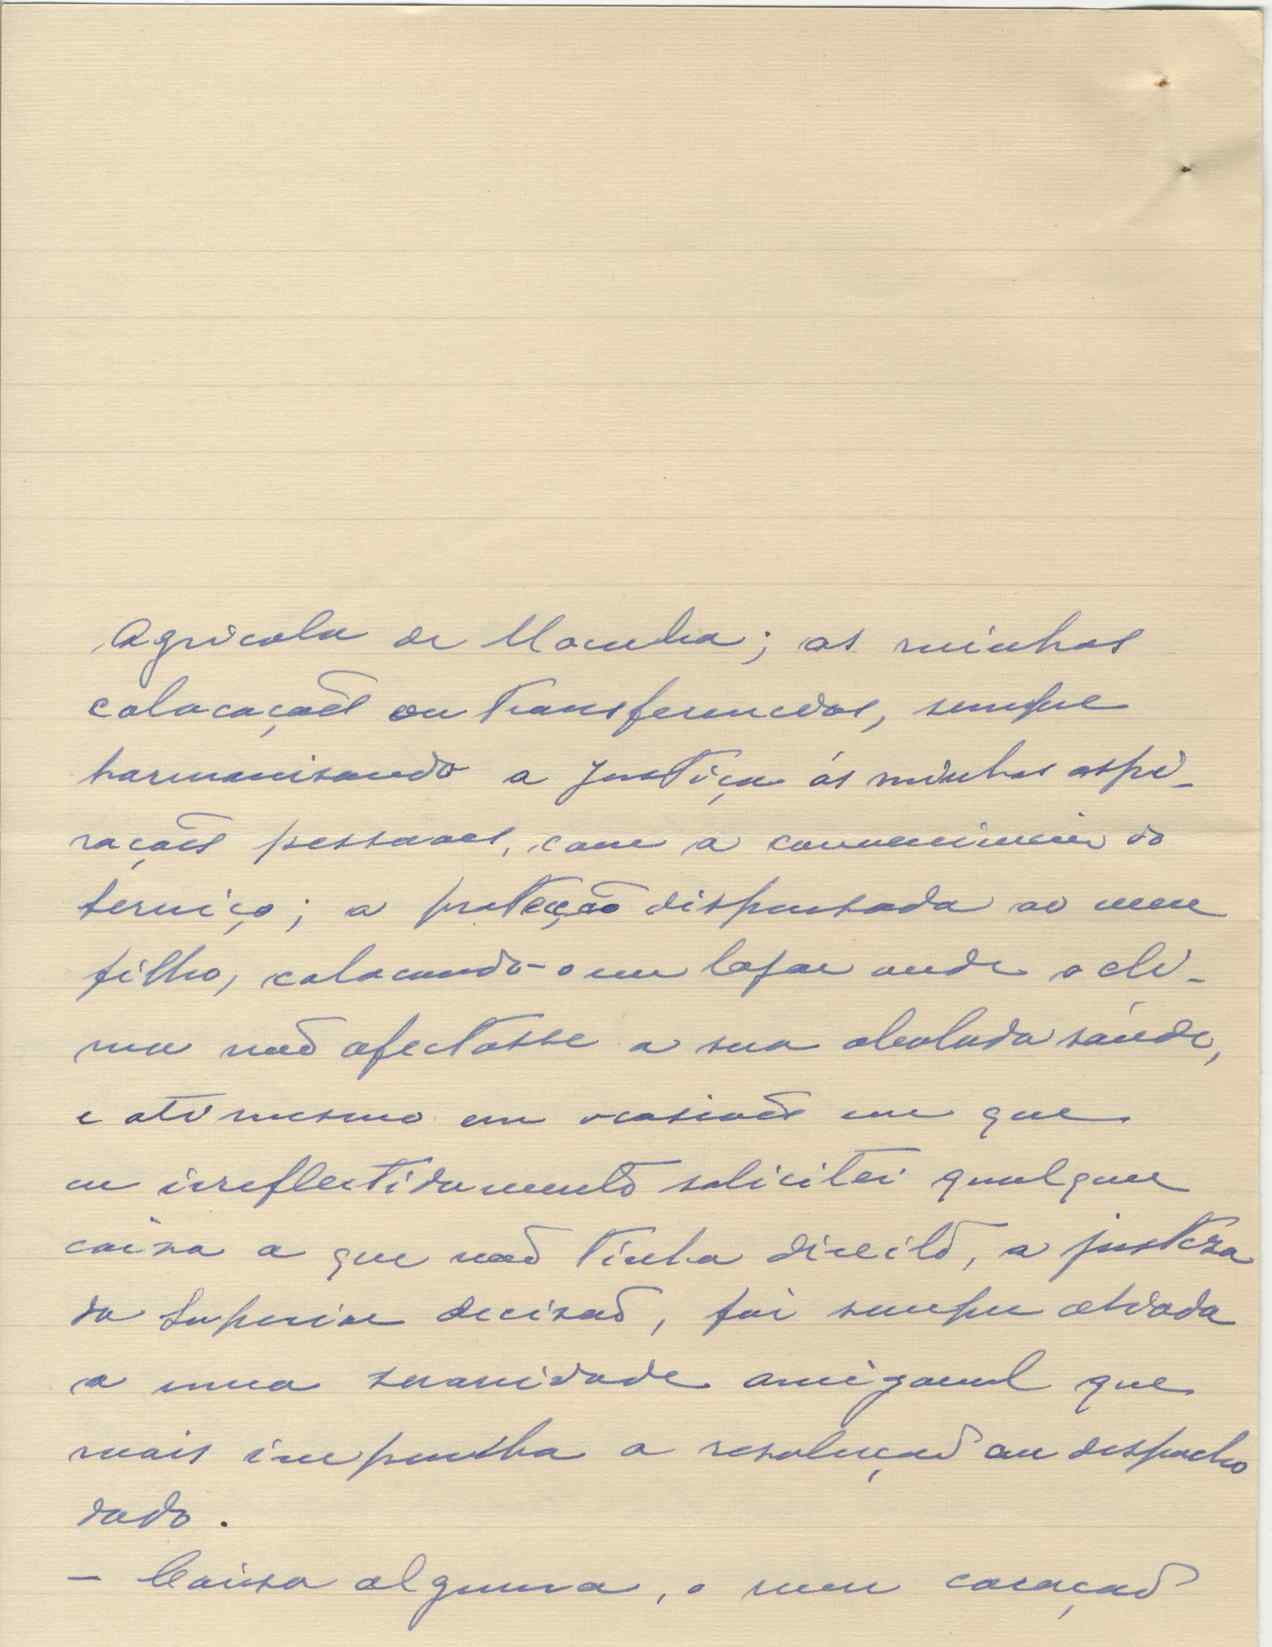 Agricola de Mocuba; as minhas
colocações ou transferencias, sempre
harmonisando a justiça ás minhas aspi-
rações pessoaes, com a conveniencia do
serviço; a protecção dispensada ao meu
filho, colocando-o em logar onde o cli-
ma não afectasse a sua abalada saúde,
e até mesmo em ocasiões em que
eu irreflectidamente solicitei qualquer
coisa a que não tinha direito, a justeza
da Superior decisão, foi sempre aliada
a uma suavidade amigavel que
mais impunha a resolução ou despacho
dado.
- Coisa alguma, o meu coração